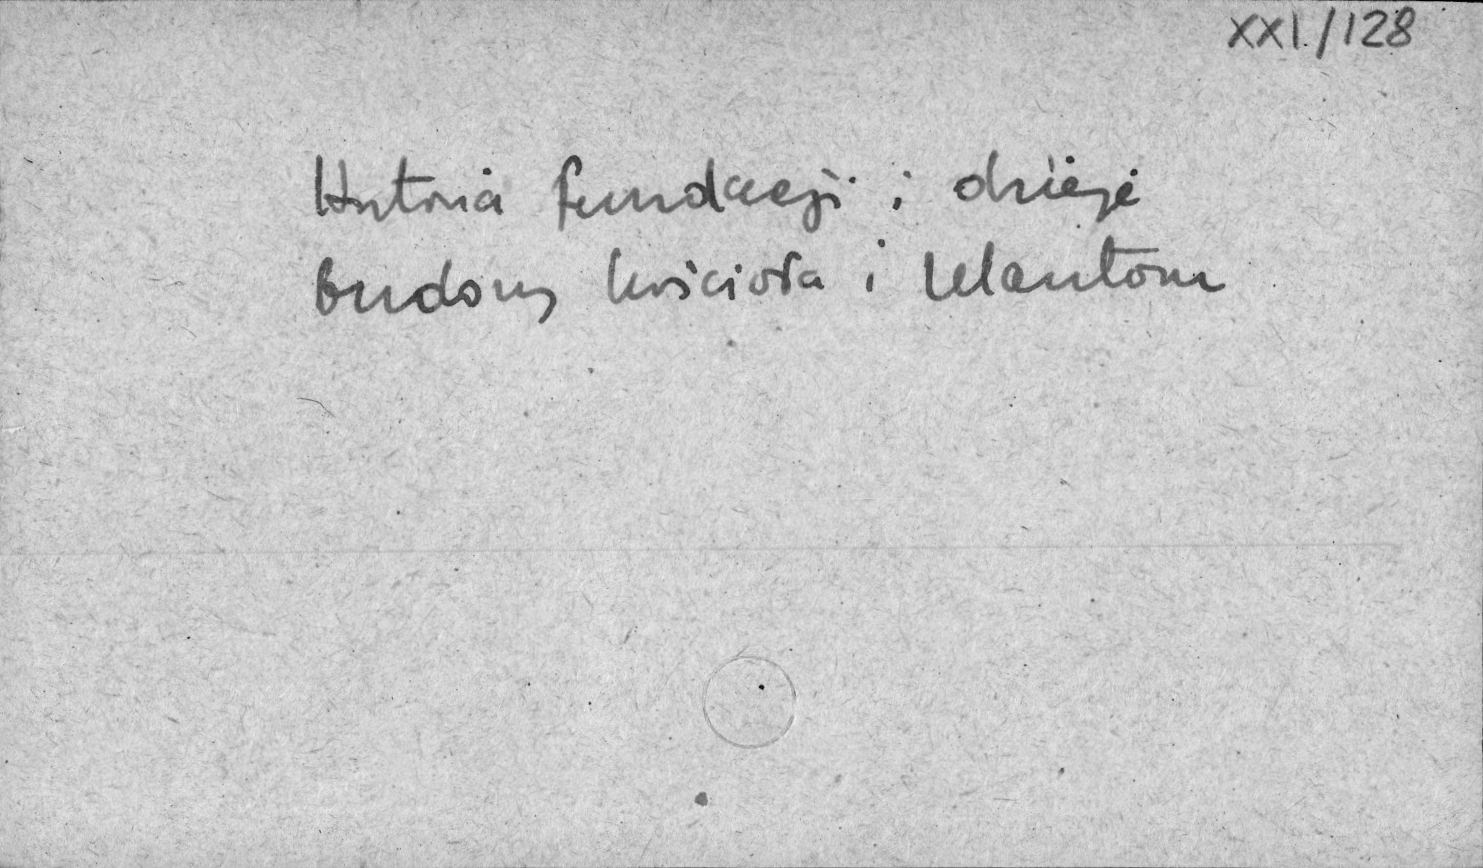 XXI./128
Historia fundacji i dzieje
budowy kościoła i klasztoru